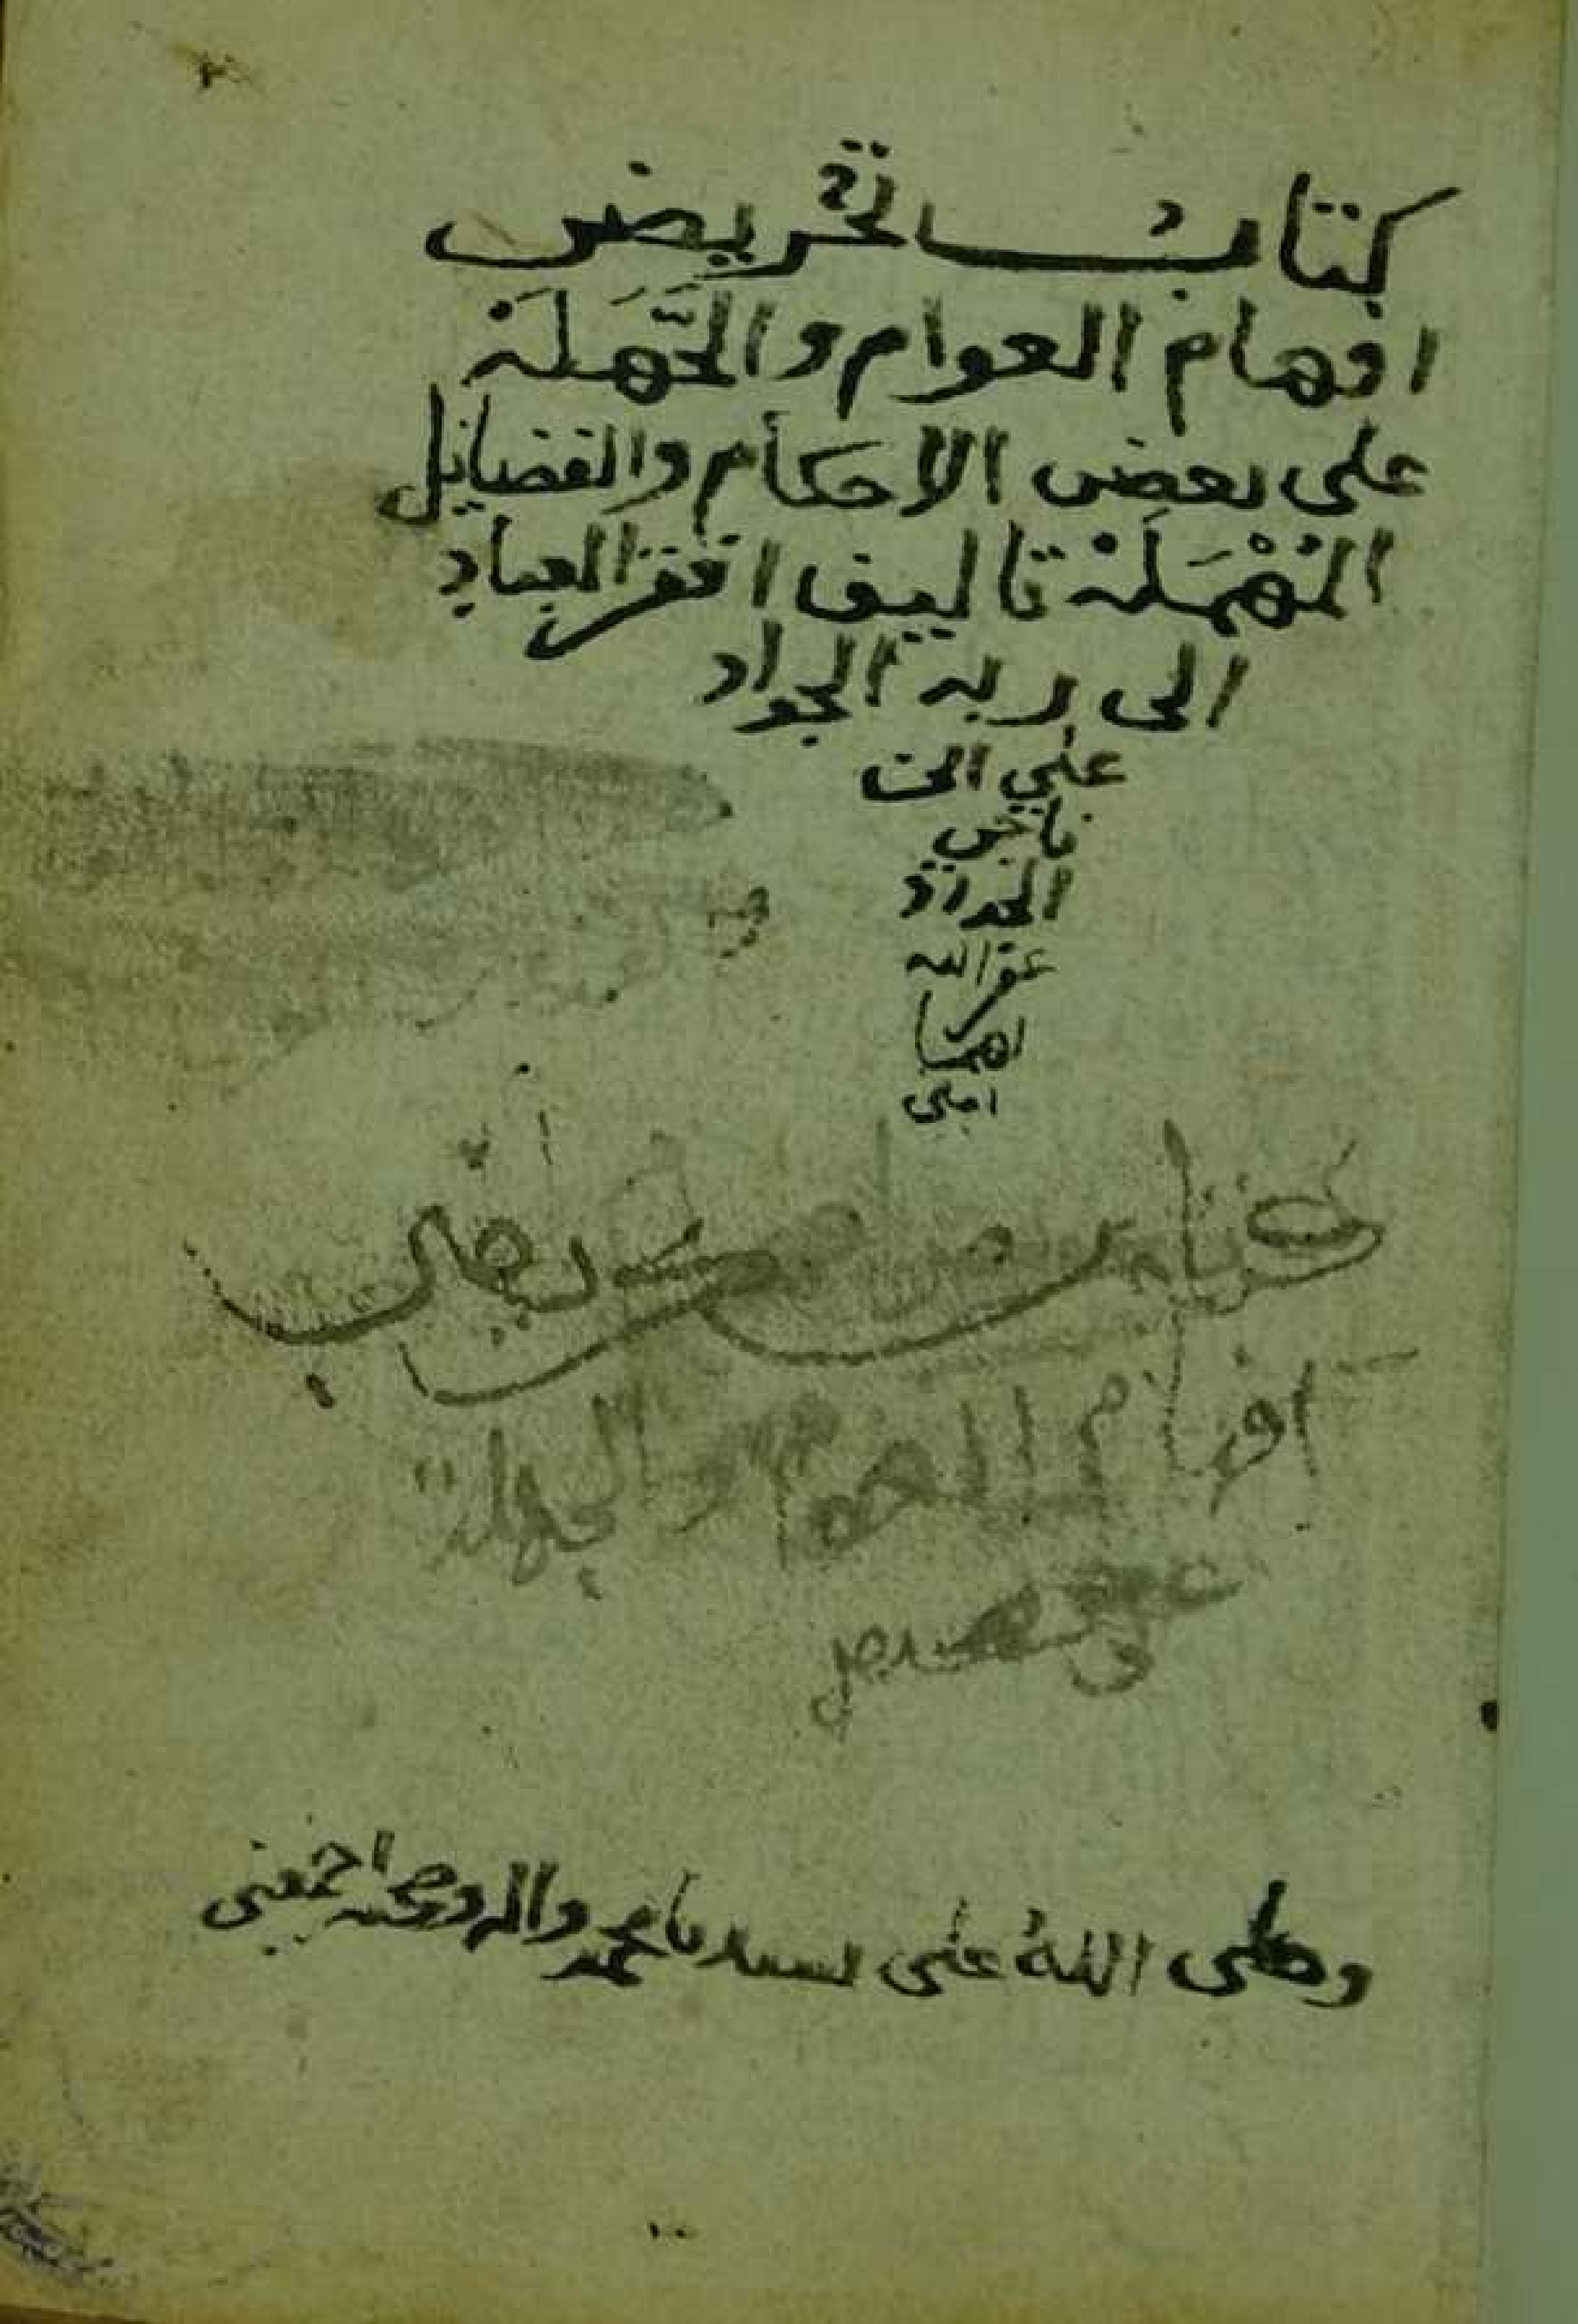 كتاب تحريض
افهام العوام والجَّهَلَة
على بعض الاحكام والفضايل
المُهْمَلَة تاليف افقر العباد
الى ربه الجواد
علي ابن
ناجي
الحداد
غفر الله
لهما
امين
كتاب
افهام العوام والجهلة
وصلى الله على سيدنا محمد واله وصحبه اجمعين